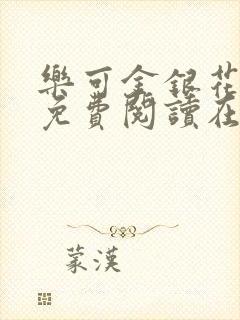 樂可金銀花
免費閱讀在
蒙漢